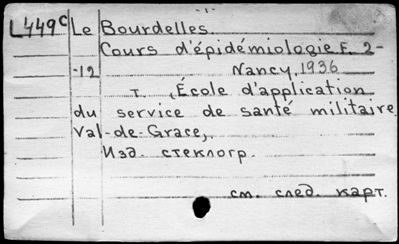 L449c Le Bourdelles.
Cours d'épidémiologie F. 2-
-12 Nancy, 1936
т. (École d'application
du service de santé militaire
Val-de-Grace,.
Изд. стеклогр.
см. след. карт.